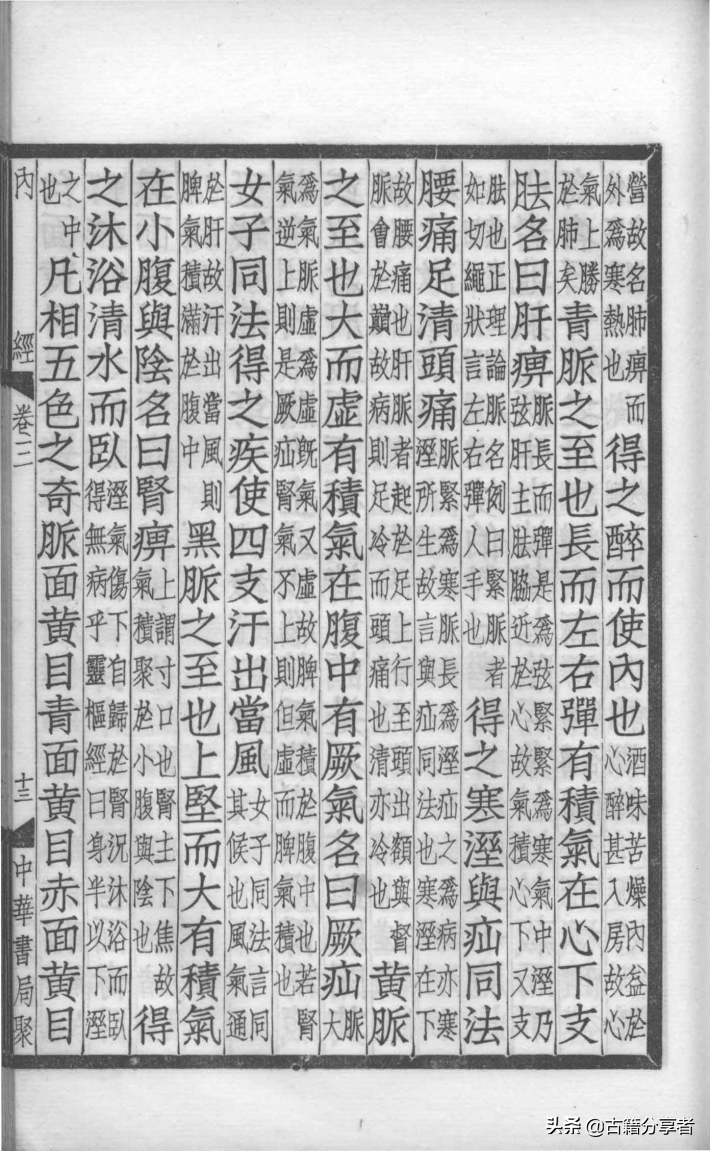 營故名肺痹而外為寒熱也得之醉而使內也酒味苦燥內益於心醉甚入房故心
氣上勝於肺矣青脈之至也長而左右彈有積氣在心下支
胠名曰肝痹脈長而彈是為弦緊緊為寒氣中溼乃弦肝主胠脇近於心故氣積心下又支
胠也正理論脈名例曰緊脈者如切繩狀言左右彈人手也得之寒溼與疝同法
腰痛足清頭痛脈緊為寒脈長為溼疝之為病亦寒溼所生故言與疝同法也寒溼在下
故腰痛也肝脈者起於足上行至頭出額與督脈會於巔故病則足冷而頭痛也清亦冷也黃脈
之至也大而虛有積氣在腹中有厥氣名曰厥疝脈大
為氣脈虛為虛旣氣又虛故脾氣積於腹中也若腎氣逆上則是厥疝腎氣不上則但虛而脾氣積也
女子同法得之疾使四支汗出當風女子同法言同其候也風氣通
於肝故汗出當風則脾氣積滿於腹中黑脈之至也上堅而大有積氣
在小腹與陰名曰腎痹上謂寸口也腎主下焦故氣積聚於小腹與陰也得
之沐浴清水而臥溼氣傷下自歸於腎況沐浴而臥得無病乎靈樞經曰身半以下溼
之中也凡相五色之奇脈面黃目青面黃目赤面黃目
內經 卷三 十三 中華書局聚
头条 @古籍分享者